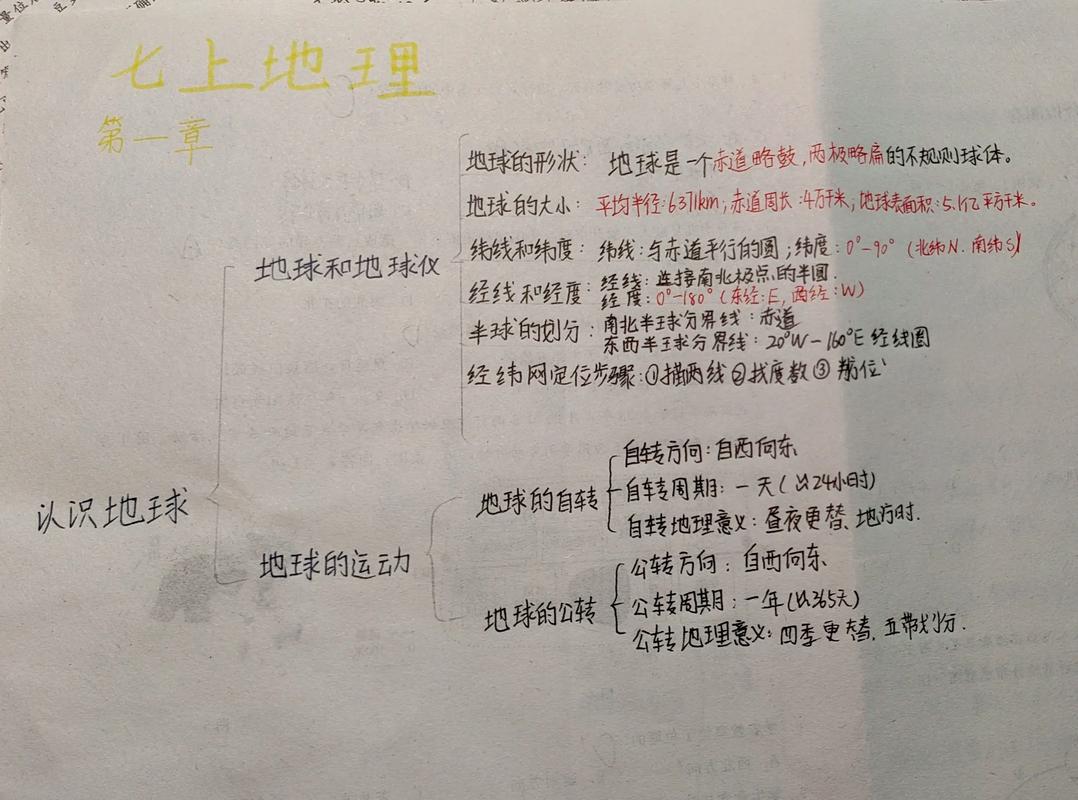 七上地理
第一章
认识地球
地球和地球仪
地球的形状：地球是一个赤道略鼓，两极略扁的不规则球体。
地球的大小：平均半径：6371km；赤道周长：4万千米；地球表面积：5.1亿平方千米。
纬线和纬度：纬线：与赤道平行的圆；纬度：0°-90°（北纬N．南纬S）
经线和经度：经线：连接南北极点的半圆．
经度：0°-180°（东经：E，西经：W）
半球的划分：南北半球分界线：赤道
东西半球分界线：20°W-160°E经线圈
经纬网定位步骤：①描两线②找度数③
地球的运动
地球的自转
自转方向：自西向东
自转周期：一天（以24小时）
自转地理意义：昼夜更替、地方时．
地球的公转
公转方向：自西向东
公转周期：一年（以365天）
公转地理意义：四季更替、五带划分．